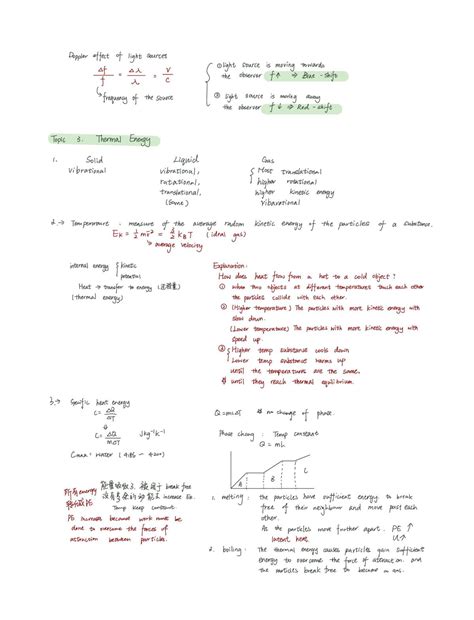 Doppler effect of light sources
Δf/f = Δλ/λ = v/c
frequency of the source
① light source is moving towards
the observer f↑ ⇒ Blue-shift
② light source is moving away
the observer f↓ ⇒ Red-shift
Topic 3. Thermal Energy
1. Solid Liquid Gas
vibrational
vibrational,
rotational,
translational,
(same)
Most translational
higher rotational
higher kinetic energy
2.→ Temperature : measure of the average random kinetic energy of the particles of a substance.
(ideal gas)
average velocity
internal energy { kinetic
potential
Heat → transfer to energy
(thermal energy)
Explanation:
How does heat flow from a hot to a cold object?
① When two objects at different temperatures touch each other
the particles collide with each other.
② (Higher temperature) The particles with more kinetic energy with
slow down.
(Lower temperature) The particles with more kinetic energy with
speed up.
③ { Higher temp substance cools down
Lower temp substance warms up
until the temperature are the same.
until they reach thermal equilibrium.
3.→ Specific heat energy
C = ΔQ/ΔT
C = ΔQ/mΔT Jkg⁻¹K⁻¹
water
Temp keep constant.
PE increases because work must be
done to overcome the forces of
attraction between particles.
Q=mcΔT no change of phase.
Temp constant
Q = mL
L
1. melting : the particles have sufficient energy to break
free of their neighbour and move past each
other.
As the particles move further apart. PE ↑
latent heat U↑
2. boiling : The thermal energy causes particles gain sufficient
energy to overcome the force of attraction. and
the particles break free to become a gas.